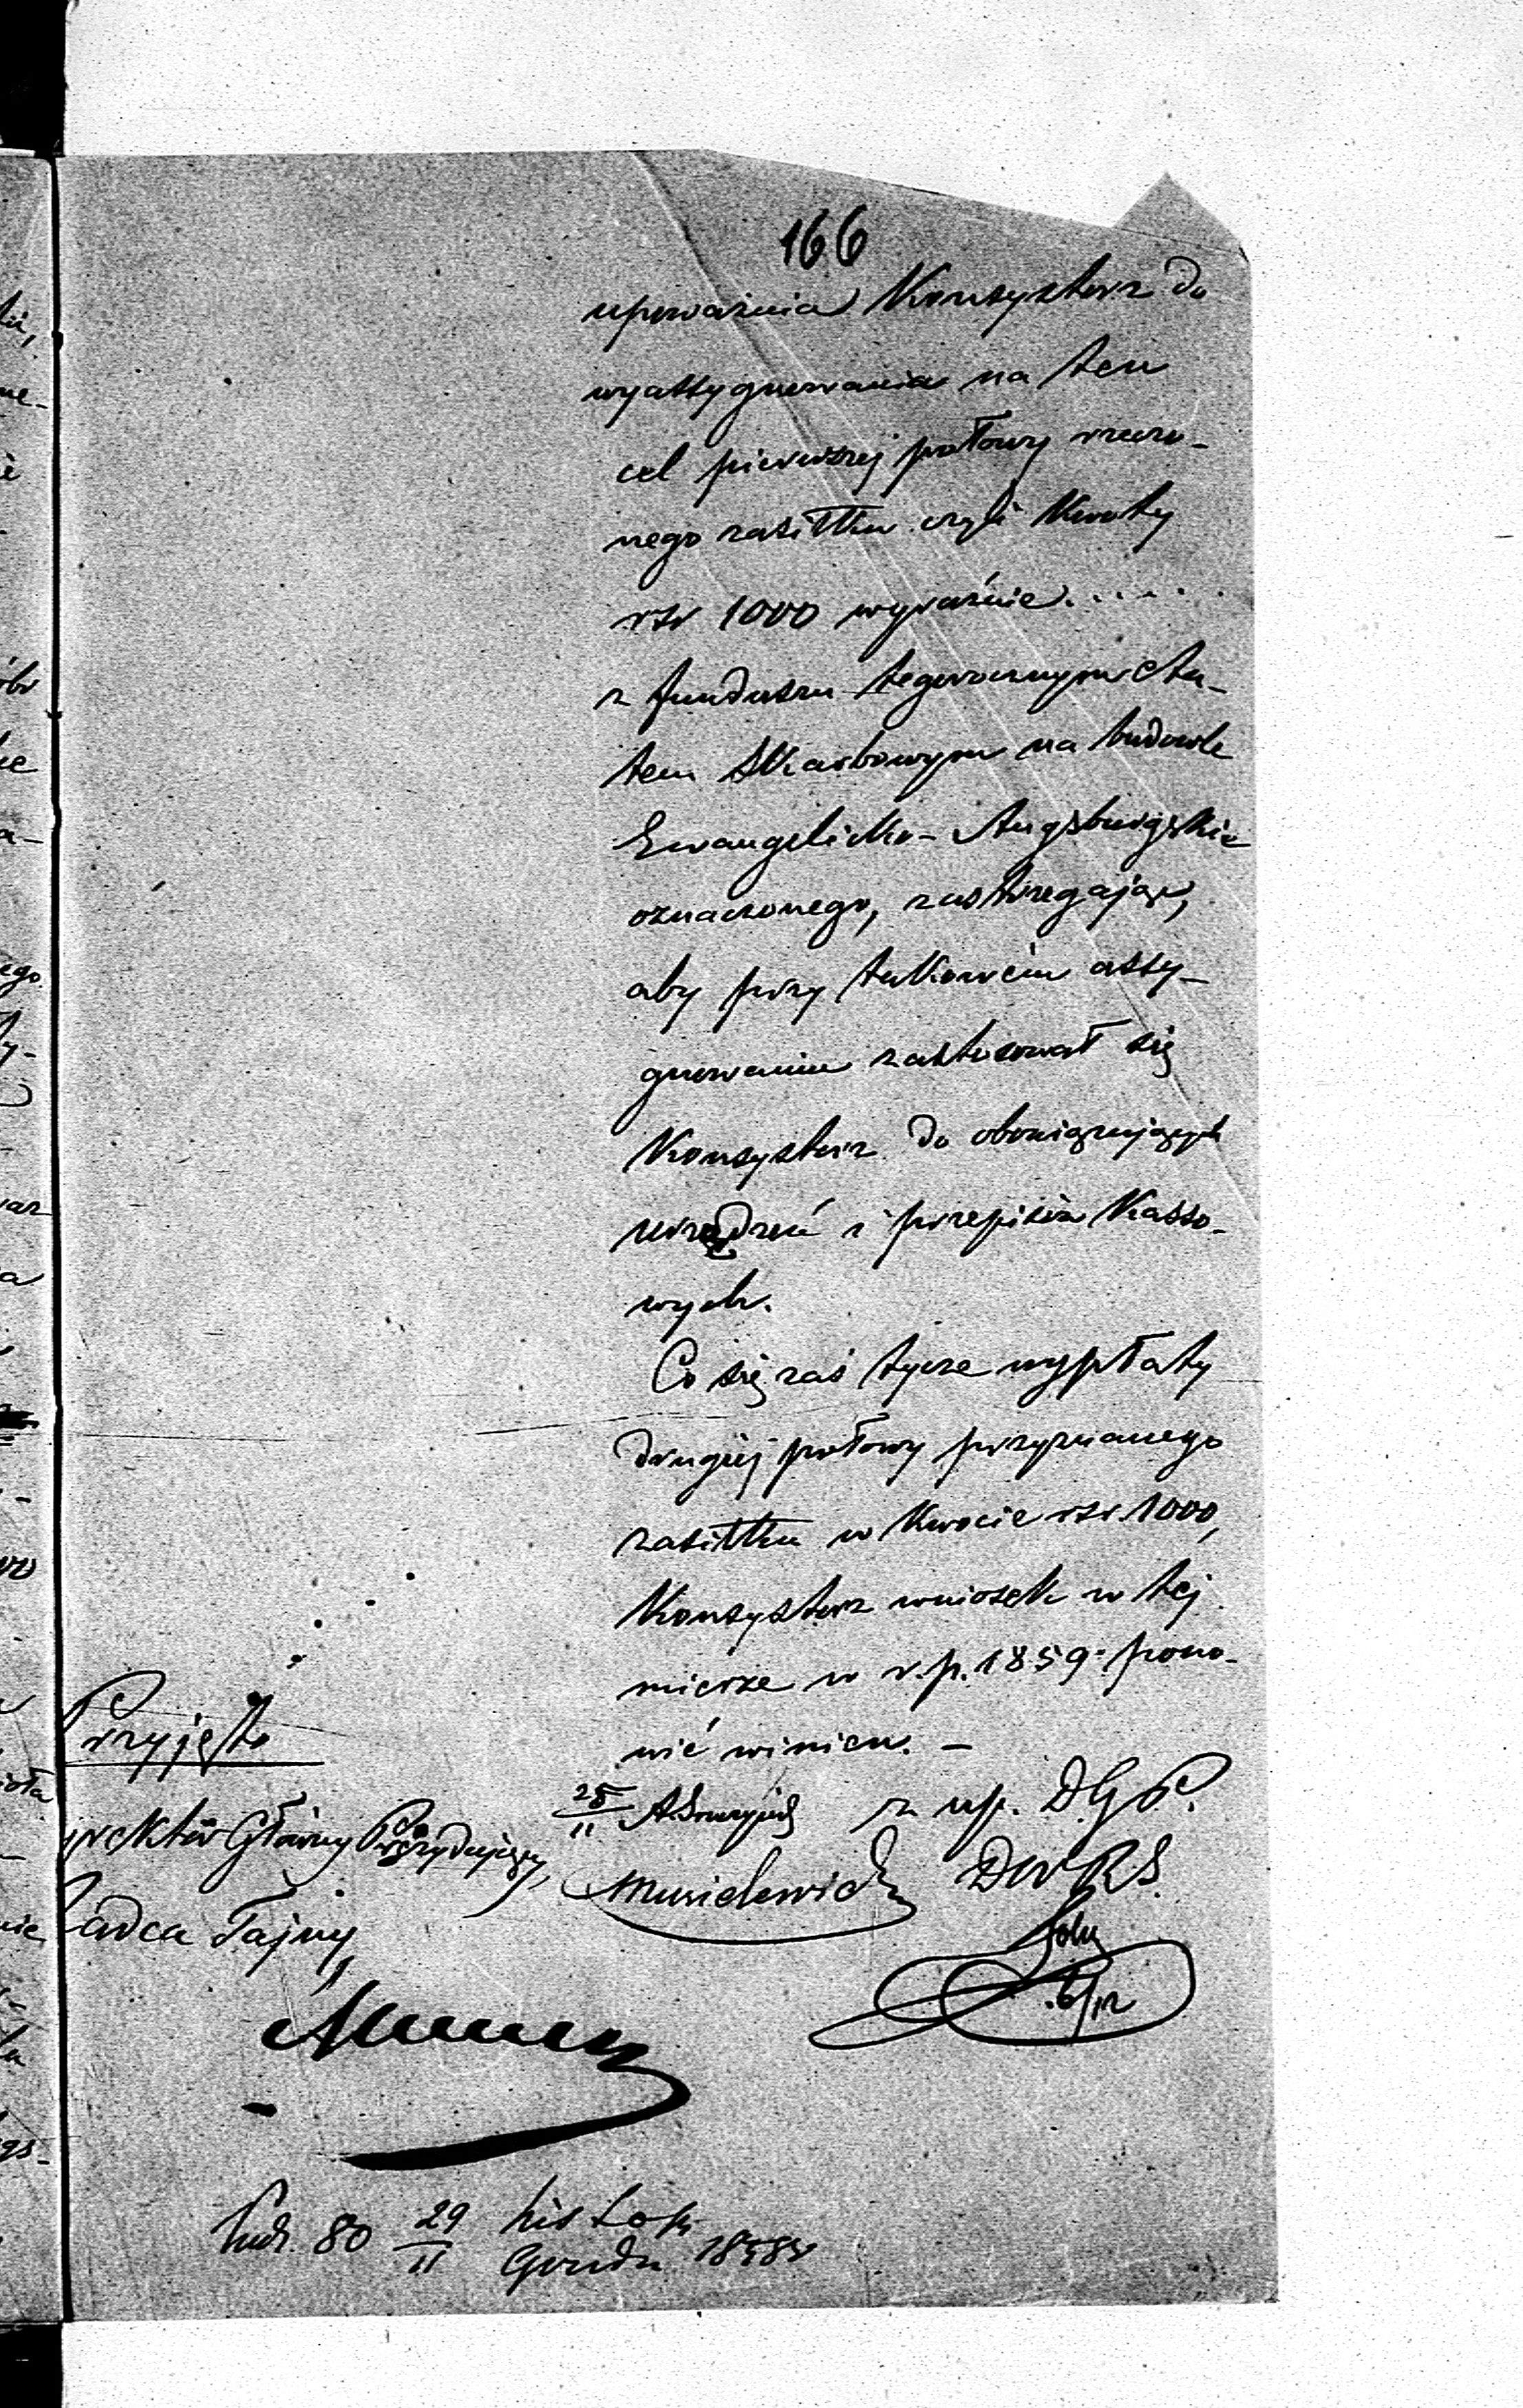 166
upoważnia Konsystorz do
wyassygnowania na ten
cel pierwszej połowy rzeczo-
nego zasiłku czyli Kwoty
rsr 1000 wyraźnie......
z funduszu tegorocznym Eta-
tem Skarbowym na budowle
Ewangelicko-Augsburgskie
oznaczonego, zastrzegając,
aby przy takowém assy-
gnowaniu zastosował się
Konsystorz do obowiązujących
urządzeń i przepisów Kasso-
wych.
Co się zaś tycze wypłaty
drugiéj połowy przyznanego
zasiłku w Kwocie rsr. 1000,
Konsystorz wniosek w tej
mierze w r.p. 1859. pono-
wić winien. —
Przyjęto
25/11
z up. D.G.P.
rektor Główny Prezydujący,
Musielewicz
DWRS.
Radca Tajny,
6/12
80 29/11 Listop
Grudn 1858